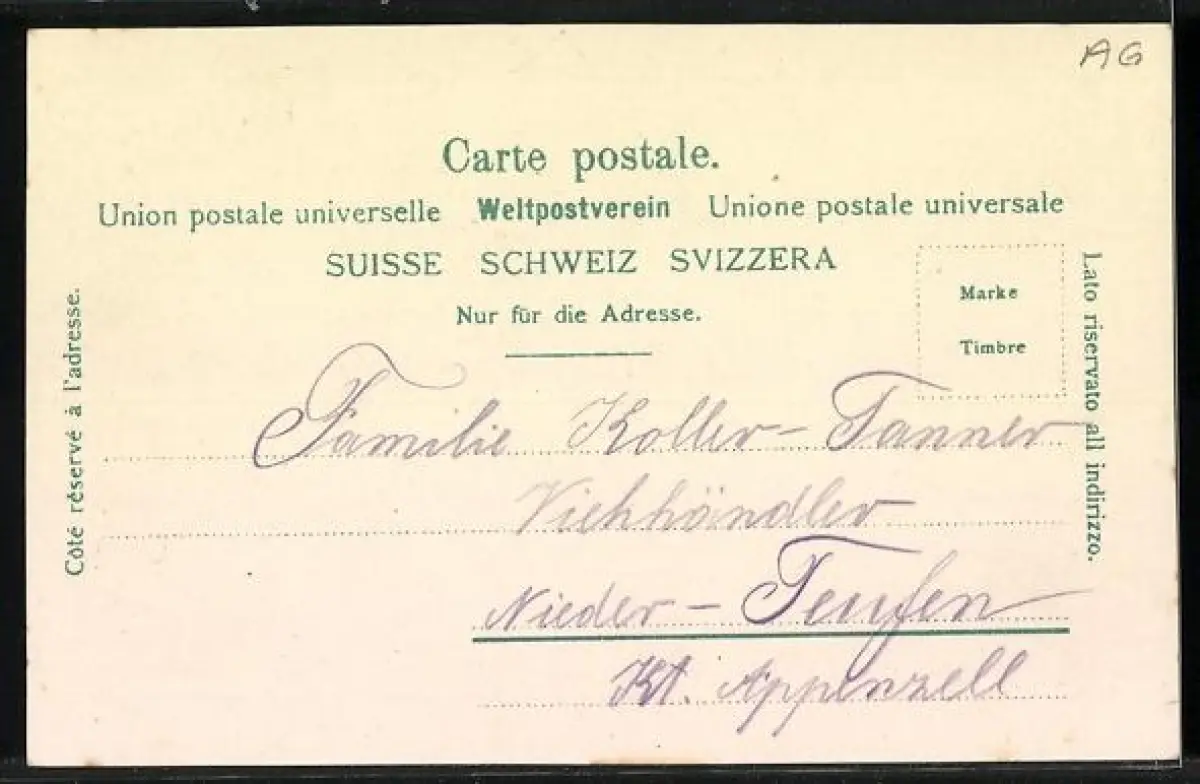 AG
Carte postale.
Union postale universelle Weltpostverein Unione postale universale
SUISSE SCHWEIZ SVIZZERA
Nur für die Adresse.
Marke
Timbre
Côté réservé à l'adresse.
Lato riservato all indirizzo.
Familie Koller-Tanner
Viehhändler
Nieder-Teufen
Kt. Appenzell